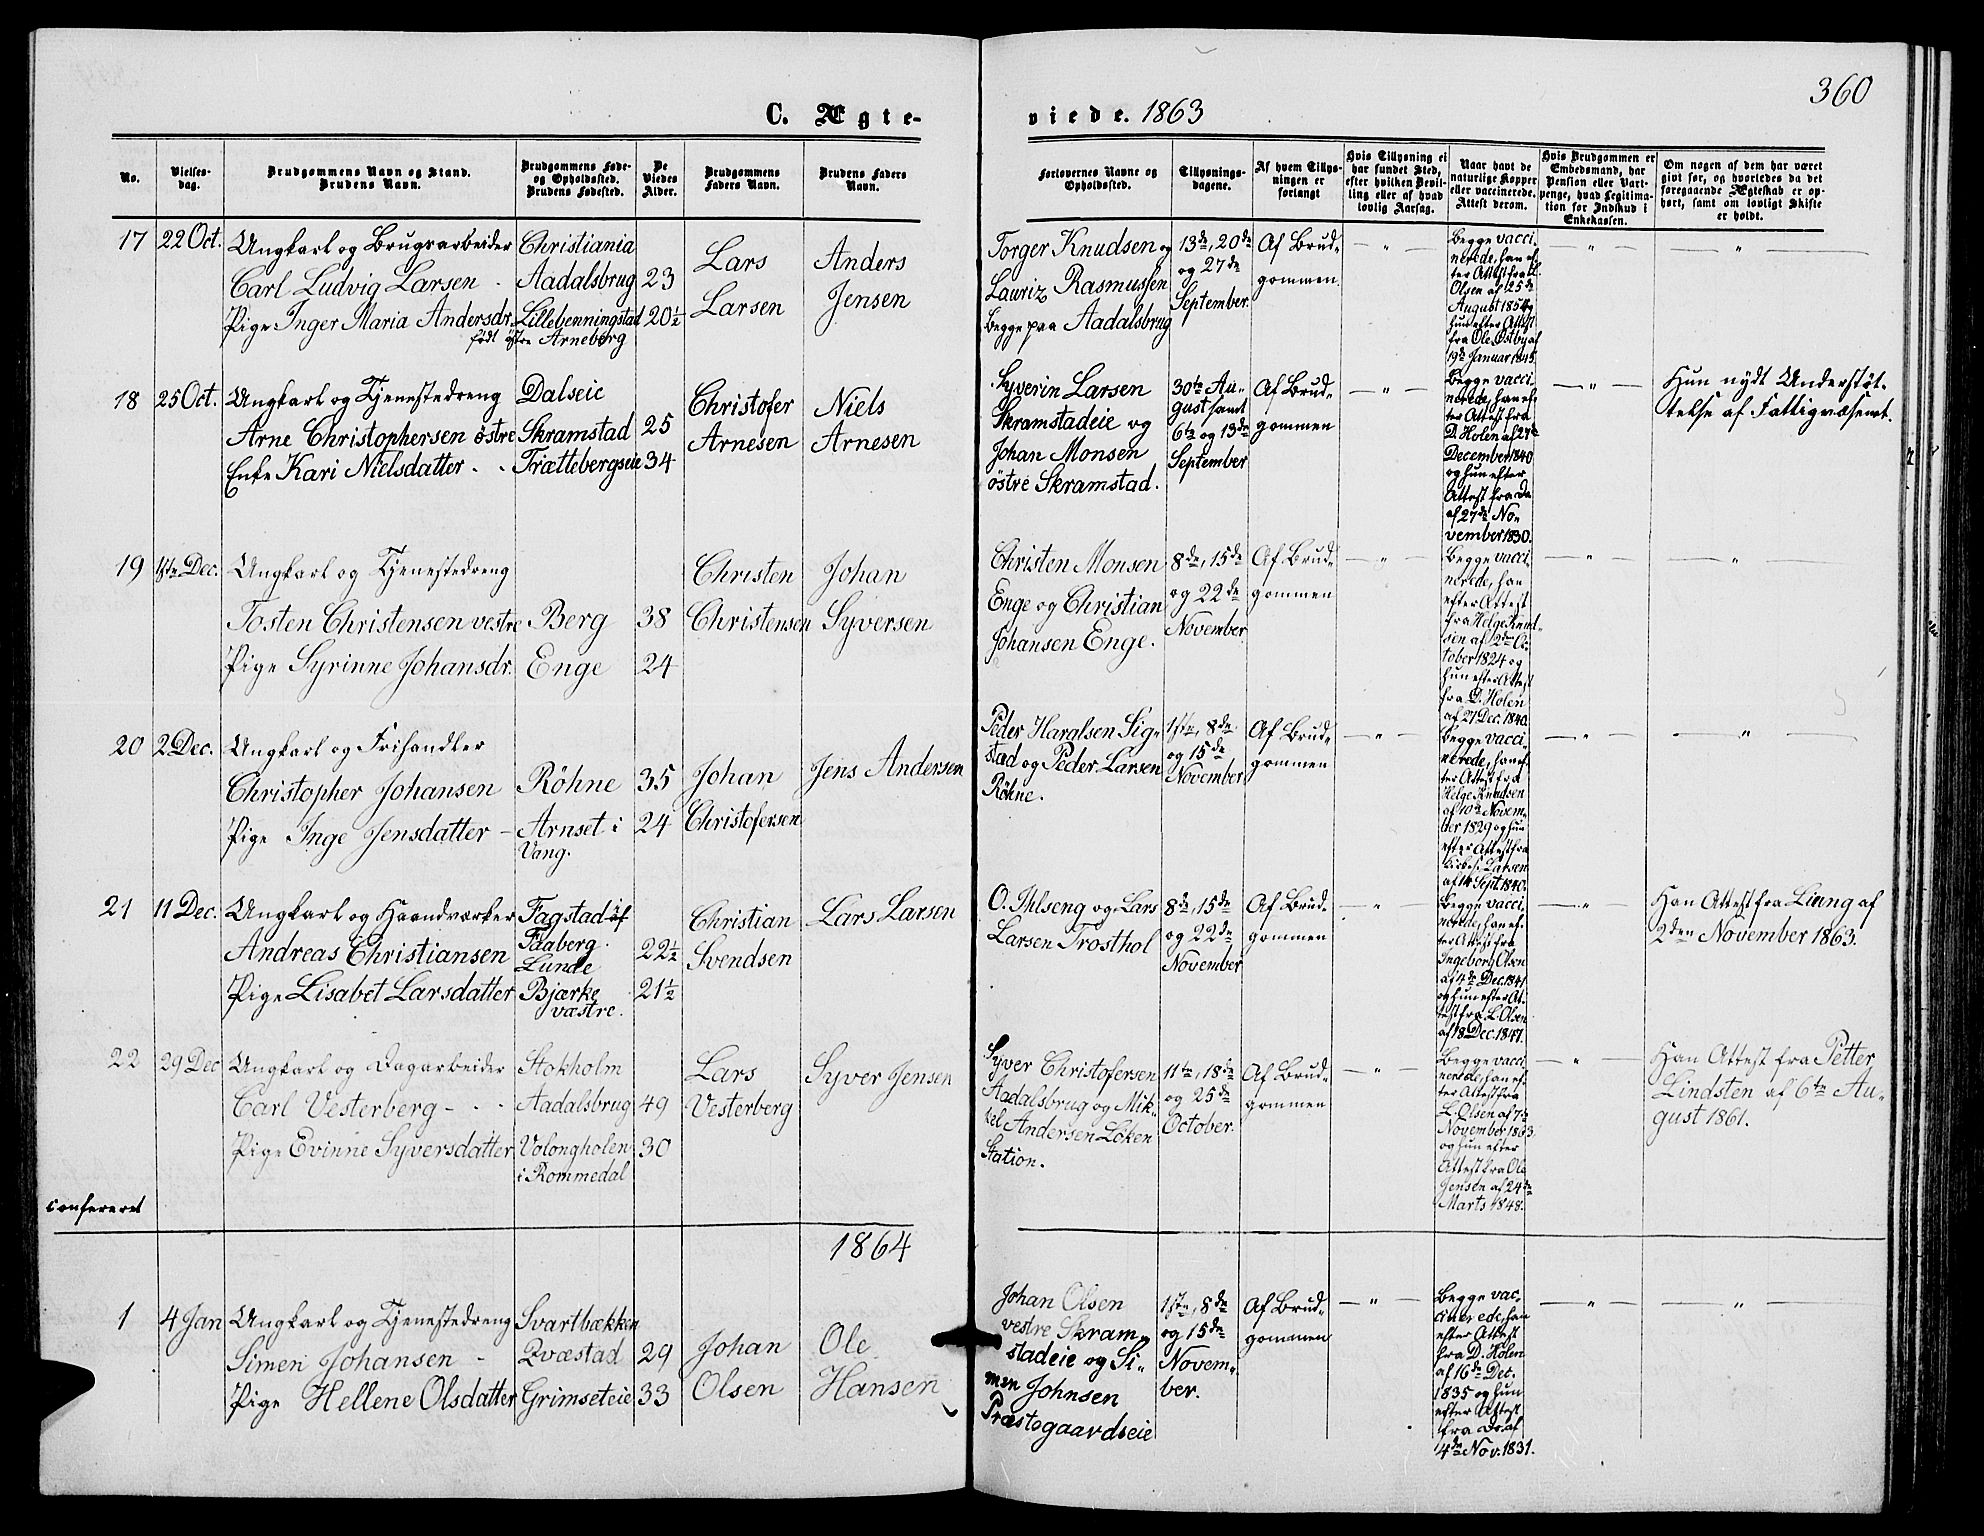 360
C. Ægte-
viede. 1863
No.
Vielses-
dag.
Brudgommens Navn og Stand.
Brudens Navn.
Brudgommens Føde-
og Opholdssted.
Brudens Fødested.
De
Viedes
Alder.
Brudgommens
Faders Navn.
Brudens Faders
Navn.
Forlovernes Navne og
Opholdssted.
Tillysnings-
dagene.
Af hvem Tillys-
ningen er
forlangt
Hvis Tillysning ei
har fundet Sted,
efter hvilken Bevil-
ling eller af hvad
lovlig Aarsag.
Naar havt de
naturlige Kopper
eller vaccinerede.
Attest derom.
Hvis Brudgommen er
Embedsmand, har
Pension eller Vart-
penge, hvad Legitima-
tion for Indskud i
Enkekassen.
Om nogen af dem har været
givt før, og hvorledes da det
foregaaende Ægteskab er op-
hørt, samt om lovligt Skifte
er holdt.
17 22 Oct.
Ungkarl og Brugsarbeider
Carl Ludvig Larsen -
Pige Inger Maria Andersdr.
Christiania
Aadalsbrug 23
Lillebenningstad 20½
født østre Arneberg
Lars
Larsen
Anders
Jensen
Torger Knudsen og
Lauriz Rasmussen
begge paa Aadalsbrug
13de, 20de
og 27de
September.
Af Brud-
gommen
Begge vacci-
nerede, han ef-
ter Attest fra L.
Olsen af 25de
August 1854 og
hun efter Attest
fra Ole Østby af
19de Januar 1845.
18 25 Oct.
Ungkarl og Tjenestedreng
Arne Christophersen östre
Enke Kari Nielsdatter - -
Dalseie
Skramstad 25
Trættebergseie 34
Christofer
Arnesen
Niels
Arnesen
Syverin Larsen
Skramstadeie og
Johan Monsen
östre Skramstad.
30te Au-
gust samt
6te og 13de
September
Af Brud-
gommen
Begge vacci-
nerede, han ef-
ter Attest fra
D. Holen af 27de
December 1840
og hun efter
Attest fra Do
af 27de No-
vember 1830.
Hun nydt Understøt-
telse af Fattigvæsenet.
19 1ste Dec.
Ungkarl og Tjenestedreng
Tosten Christensen vestre
Pige Syrinne Johansdr.
Berg 38
Enge 24
Christen
Christensen
Johan
Syversen
Christen Monsen
Enge og Christian
Johansen Enge.
8de, 15de
og 22de
November
Af Brud-
gommen
Begge vacci-
nerede, han
efter Attest
fra Helge Knud-
sen af 12te Oc-
tober 1824 og
hun efter Attest
fra D. Holen
af 27 Dec. 1840.
20 2 Dec.
Ungkarl og Frihandler
Christopher Johansen
Pige Inge Jensdatter -
Röhne 35
Arnset i 24
Vang.
Johan
Christofersen
Jens Andersen
Peder Haralsen Sig-
stad og Peder Larsen
Röhne.
1ste, 8de
og 15de
November
Af Brud-
gommen
Begge vacci-
nerede, han ef-
ter Attest fra
Helge Knudsen
af 10de Novem-
ber 1829 og hun
efter Attest fra
Larsen
af 14 Sept. 1840.
21 11 Dec.
Ungkarl og Haandværker
Andreas Christiansen
Pige Lisabet Larsdatter
Fagstad af
Faaberg.
Lunde 22½
Bjærke 21½
væstre.
Christian
Svendsen
Lars Larsen
O. Ihlseng og Lars
Larsen Trosthol
8de, 15de
og 22de
November
Af Brud-
gommen
Begge vacci-
nerede, han ef-
ter Attest fra
Ingeborg Olsen
af 4de Dec. 1841
og hun efter At-
test fra L. Olsen
af 18 Dec. 1847.
Han Attest fra Linng af
2den November 1863.
22 29 Dec
Ungkarl og Dagarbeider
Carl Vesterberg - - -
Pige Evinne Syversdatter
Stokholm
Aadalsbrug 49
Volongholen 30
i Rommedal
Lars
Vesterberg
Syver Jensen
Syver Christofersen
Aadalsbrug og Mik-
kel Andersen Löken
Station.
11te, 18de
og 25de
October.
Af Brud-
gommen
Begge vacci-
nerede, han ef-
ter Attest fra
L. Olsen af 7de
November 1863
og hun efter
Attest fra Ole
Jensen af 24de
Marts 1848.
Han Attest fra Petter
Lindsten af 6te Au-
gust 1861.
confereret
1864
1 4 Jan
Ungkarl og Tjenestedreng
Simen Johansen -
Pige Hellene Olsdatter
Svartbækken
Qvæstad 29
Grimseteie 33
Johan
Olsen
Ole
Hansen
Johan Olsen
vestre Skram-
stadeie og Si-
men Johnsen
Præstegaardseie
1ste, 8de
og 15de
Novem-
ber.
Af Brud-
gommen
Begge vac-
cinerede, han
efter Attest
fra D. Holen
af 16de Dec.
1835 og hun
efter Attest
fra Do. af
4de Nov. 1831.